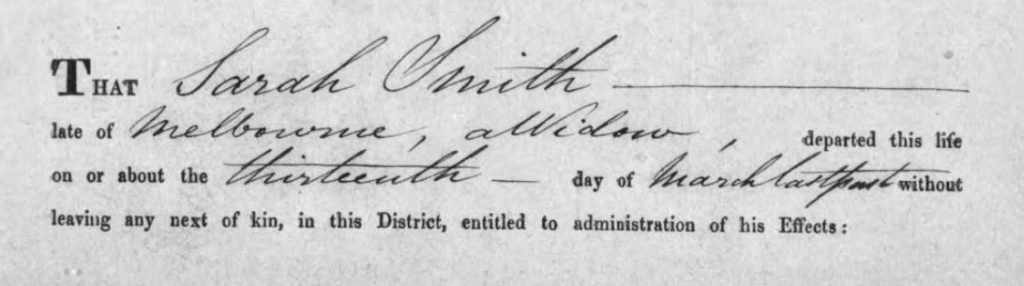 THAT Sarah Smith
late of Melbourne, a Widow, departed this life
on or about the thirteenth day of March last past without
leaving any next of kin, in this District, entitled to administration of his Effects: